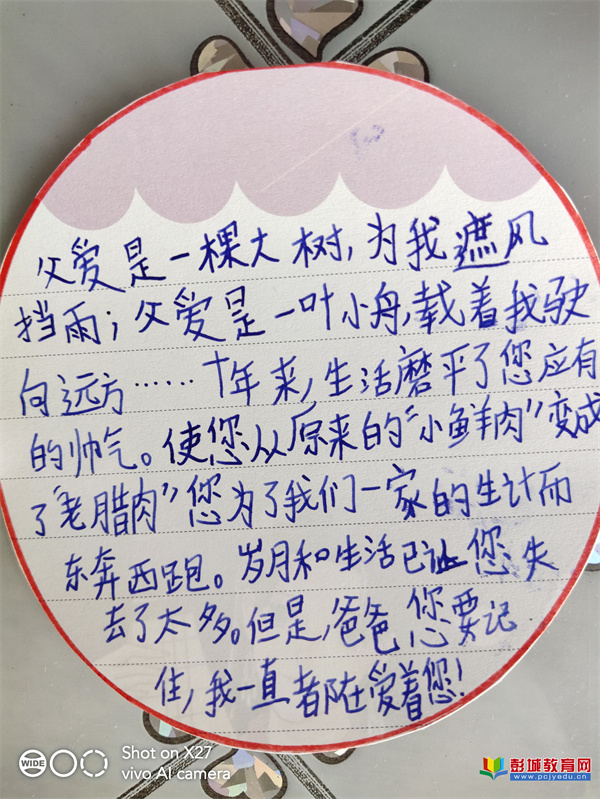 父爱是一棵大树，为我遮风
挡雨；父爱是一叶小舟，载着我驶
向远方……十年来，生活磨平了您应有
的帅气。使您从原来的“小鲜肉”变成
了“老腊肉”您为了我们一家的生计而
东奔西跑。岁月和生活已让您失
去了太多。但是，爸爸您要记
住，我一直都在爱着您！
WIDE
Shot on X27
vivo AI camera
彭城教育网
www.pcjyedu.cn